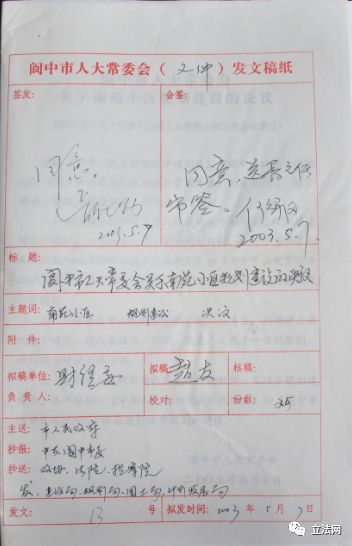 阆中市人大常委会（文件）发文稿纸
签发：
会签：
同意。
2003.5.7
同意，送
审签。
2003.5.7
标 题：
阆中市人大常委会关于南苑小区规划建设的决议
主题词：
南苑小区 规划建设 决议
附 件：
拟稿单位：
财经委
拟稿：
核稿：
负 责 人：
校对：
份数：
25
主送：
市人民政府
抄报：
中共阆中市委
抄送：
政协、法院、检察院
发：建设局、规划局、国土局
发文：
13
号
拟发时间：
2003 年 5 月 7 日
立法网